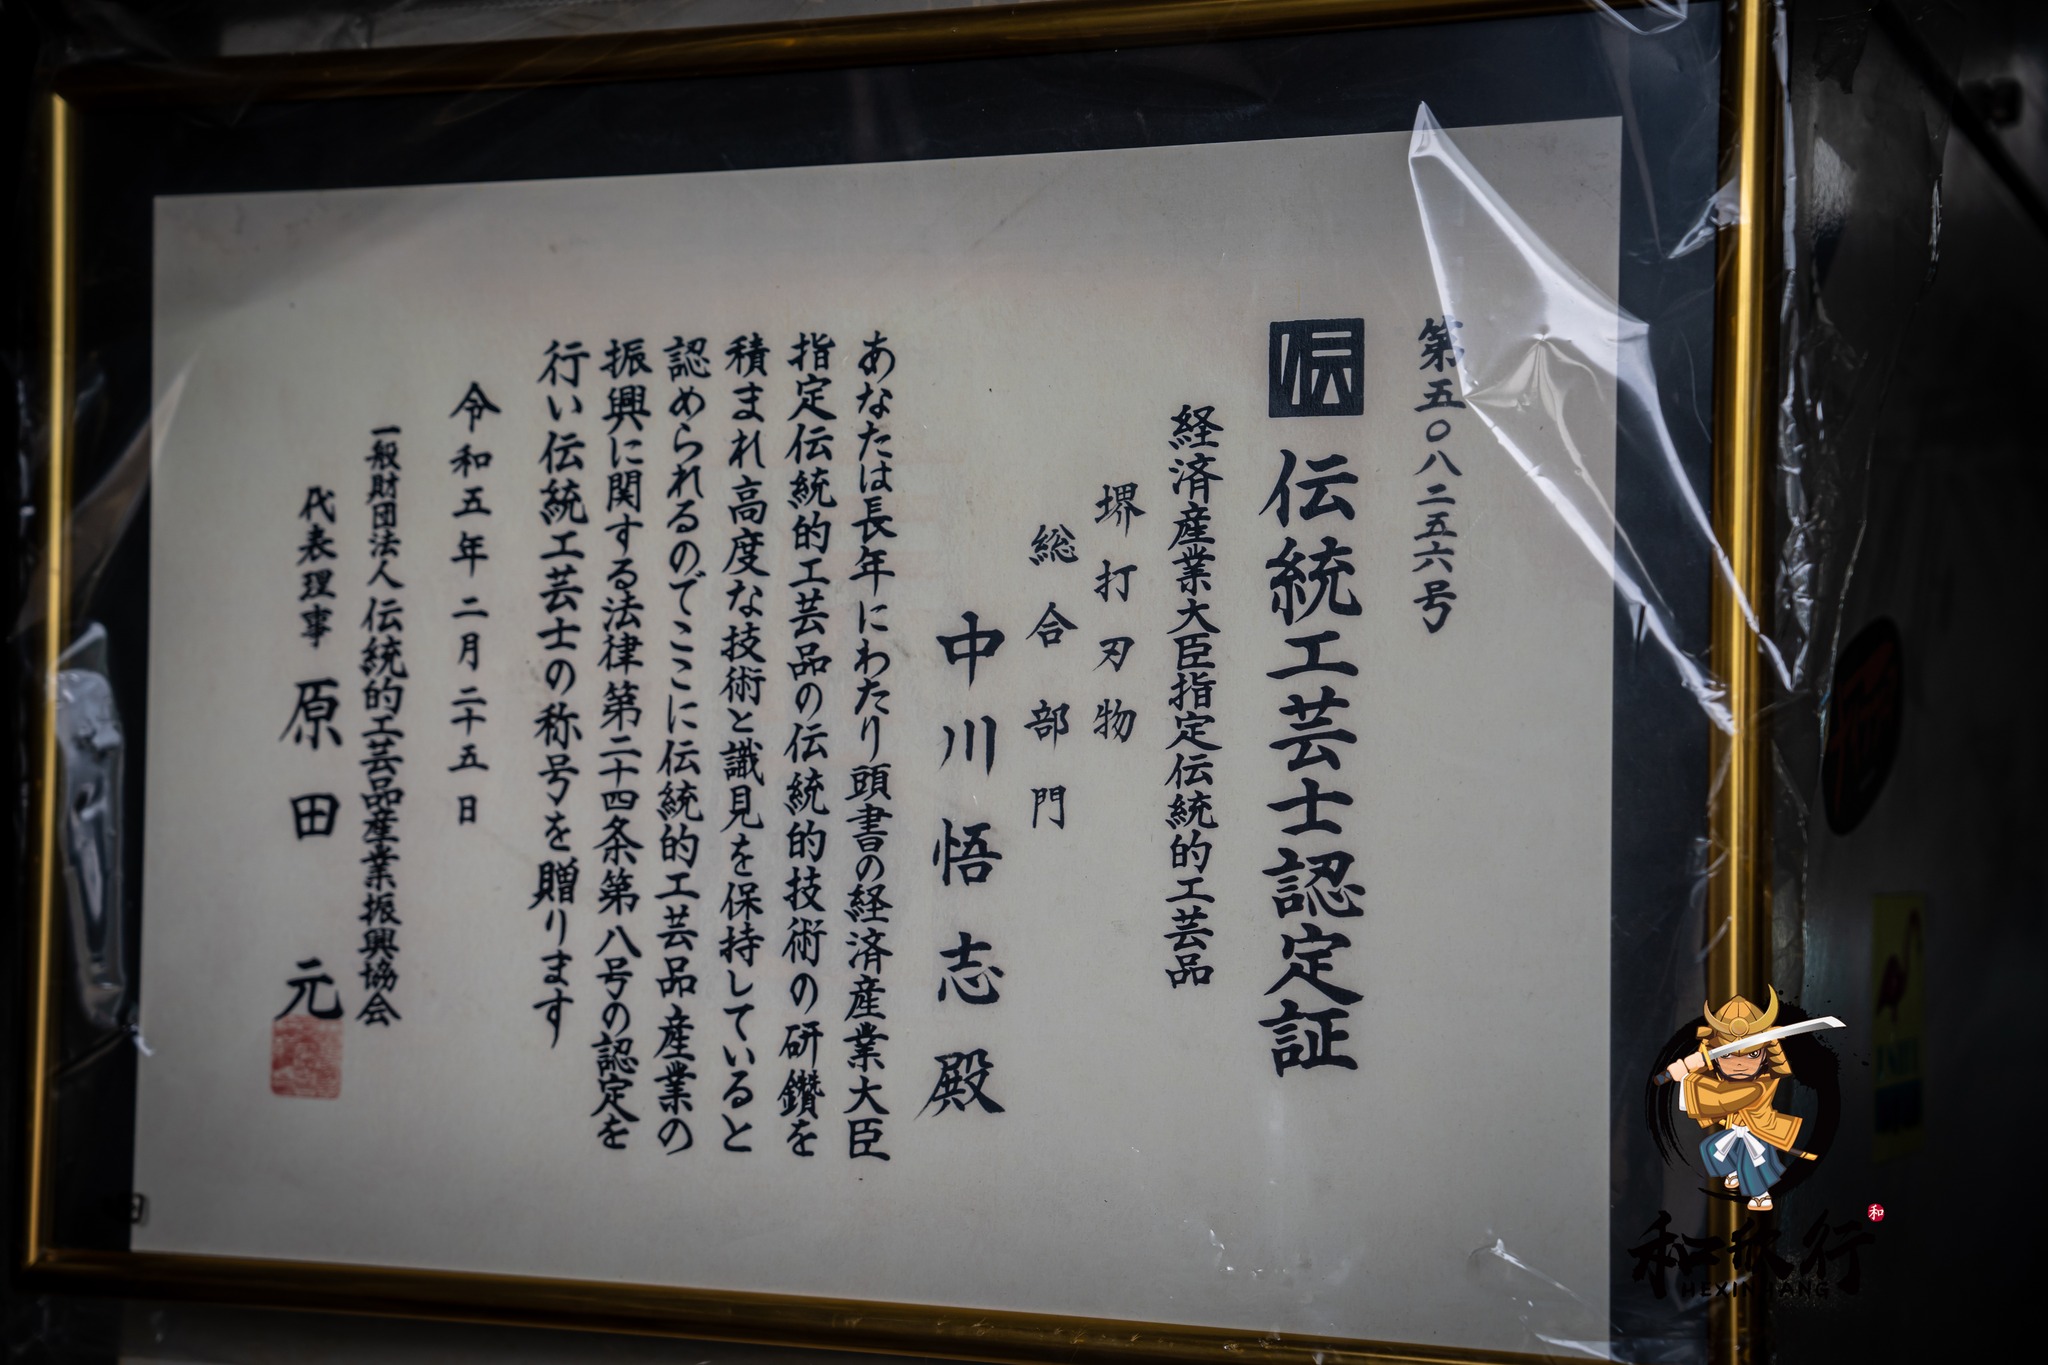 第五〇八二五六号
伝統工芸士認定証
経済産業大臣指定伝統的工芸品
堺打刃物
総合部門
中川悟志殿
あなたは長年にわたり頭書の経済産業大臣
指定伝統的工芸品の伝統的技術の研鑽を
積まれ高度な技術と識見を保持していると
認められるのでここに伝統的工芸品産業の
振興に関する法律第二十四条第八号の認定を
行い伝統工芸士の称号を贈ります
令和五年二月二十五日
一般財団法人伝統的工芸品産業振興協会
代表理事 原田 元
和
HEXINHANG